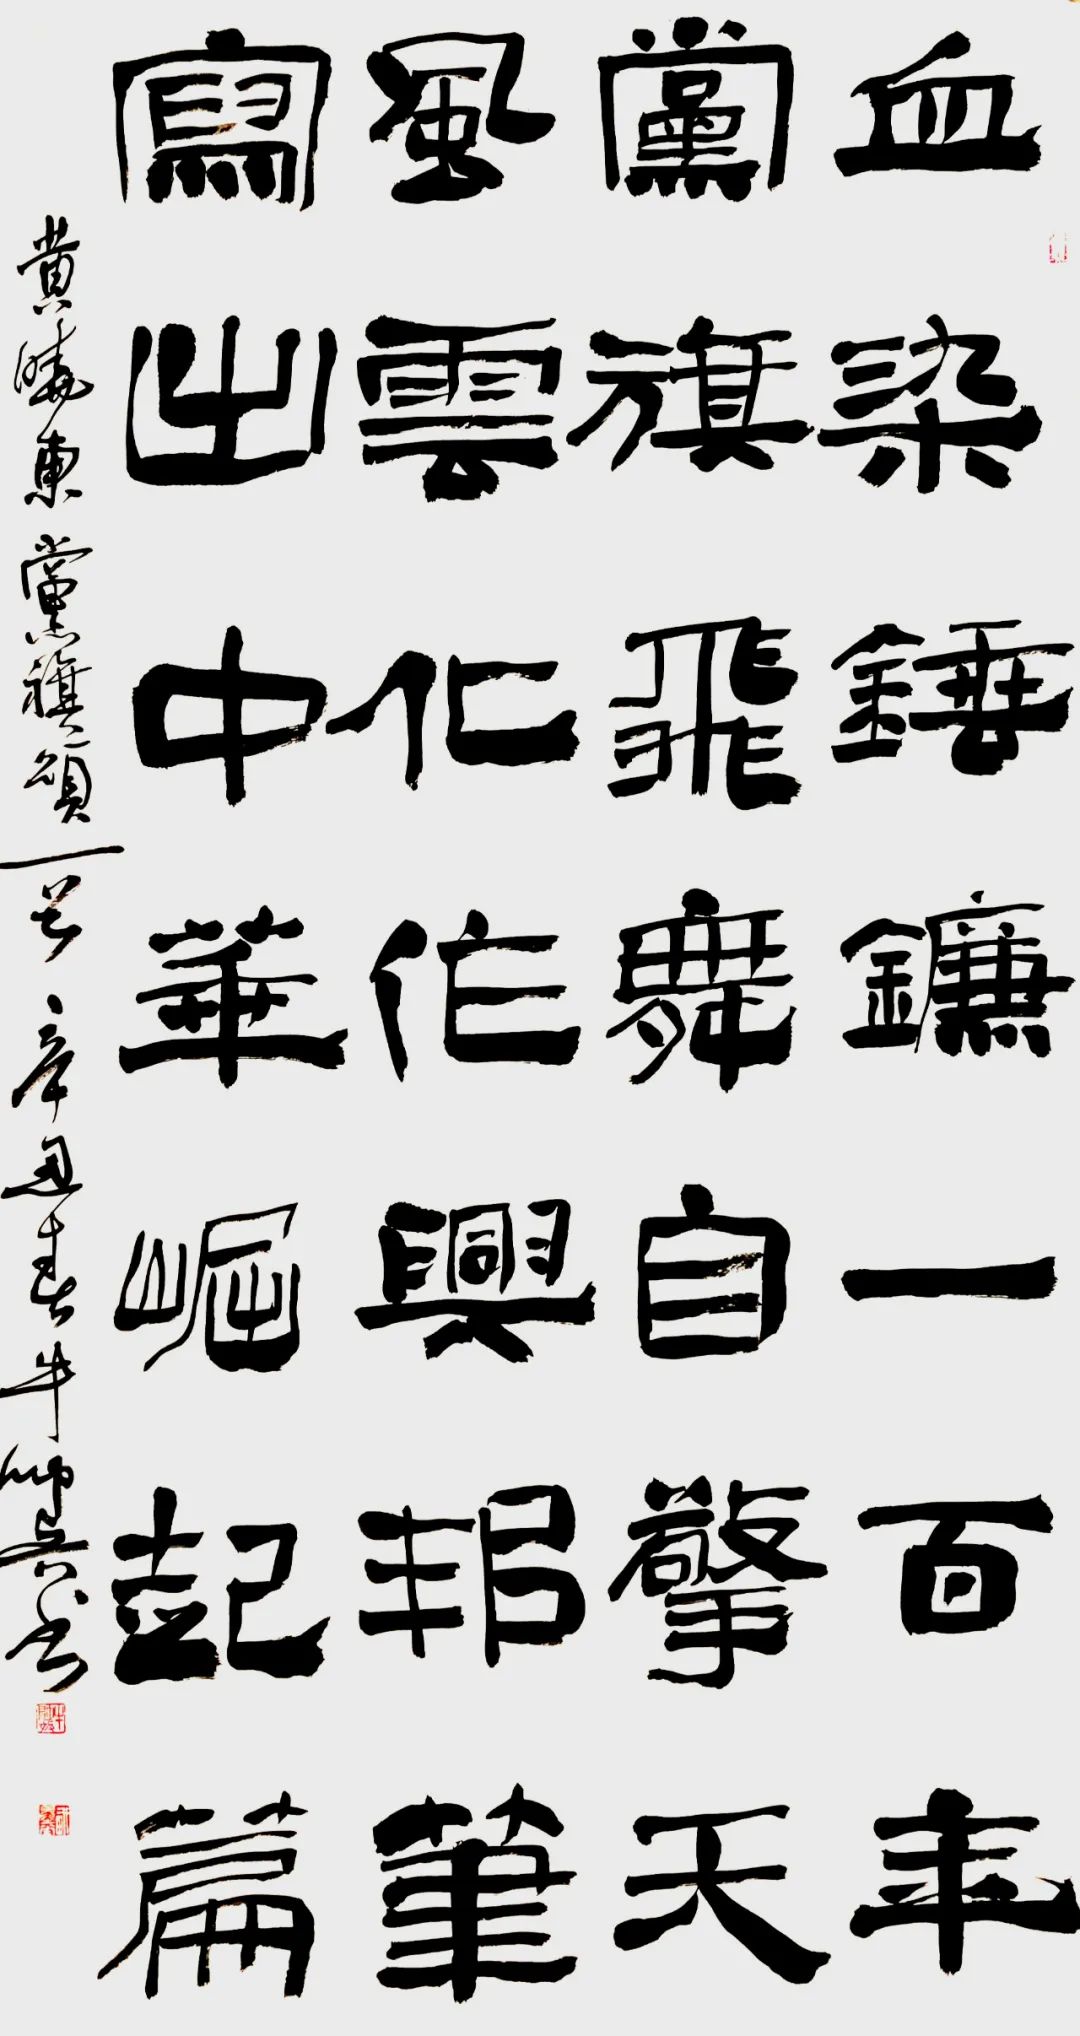 血染錘鐮一百年
黨旗飛舞自擎天
風雲化作興邦筆
寫出中華崛起篇
黃曉東黨旗頌一首辛丑春牛帅兵书